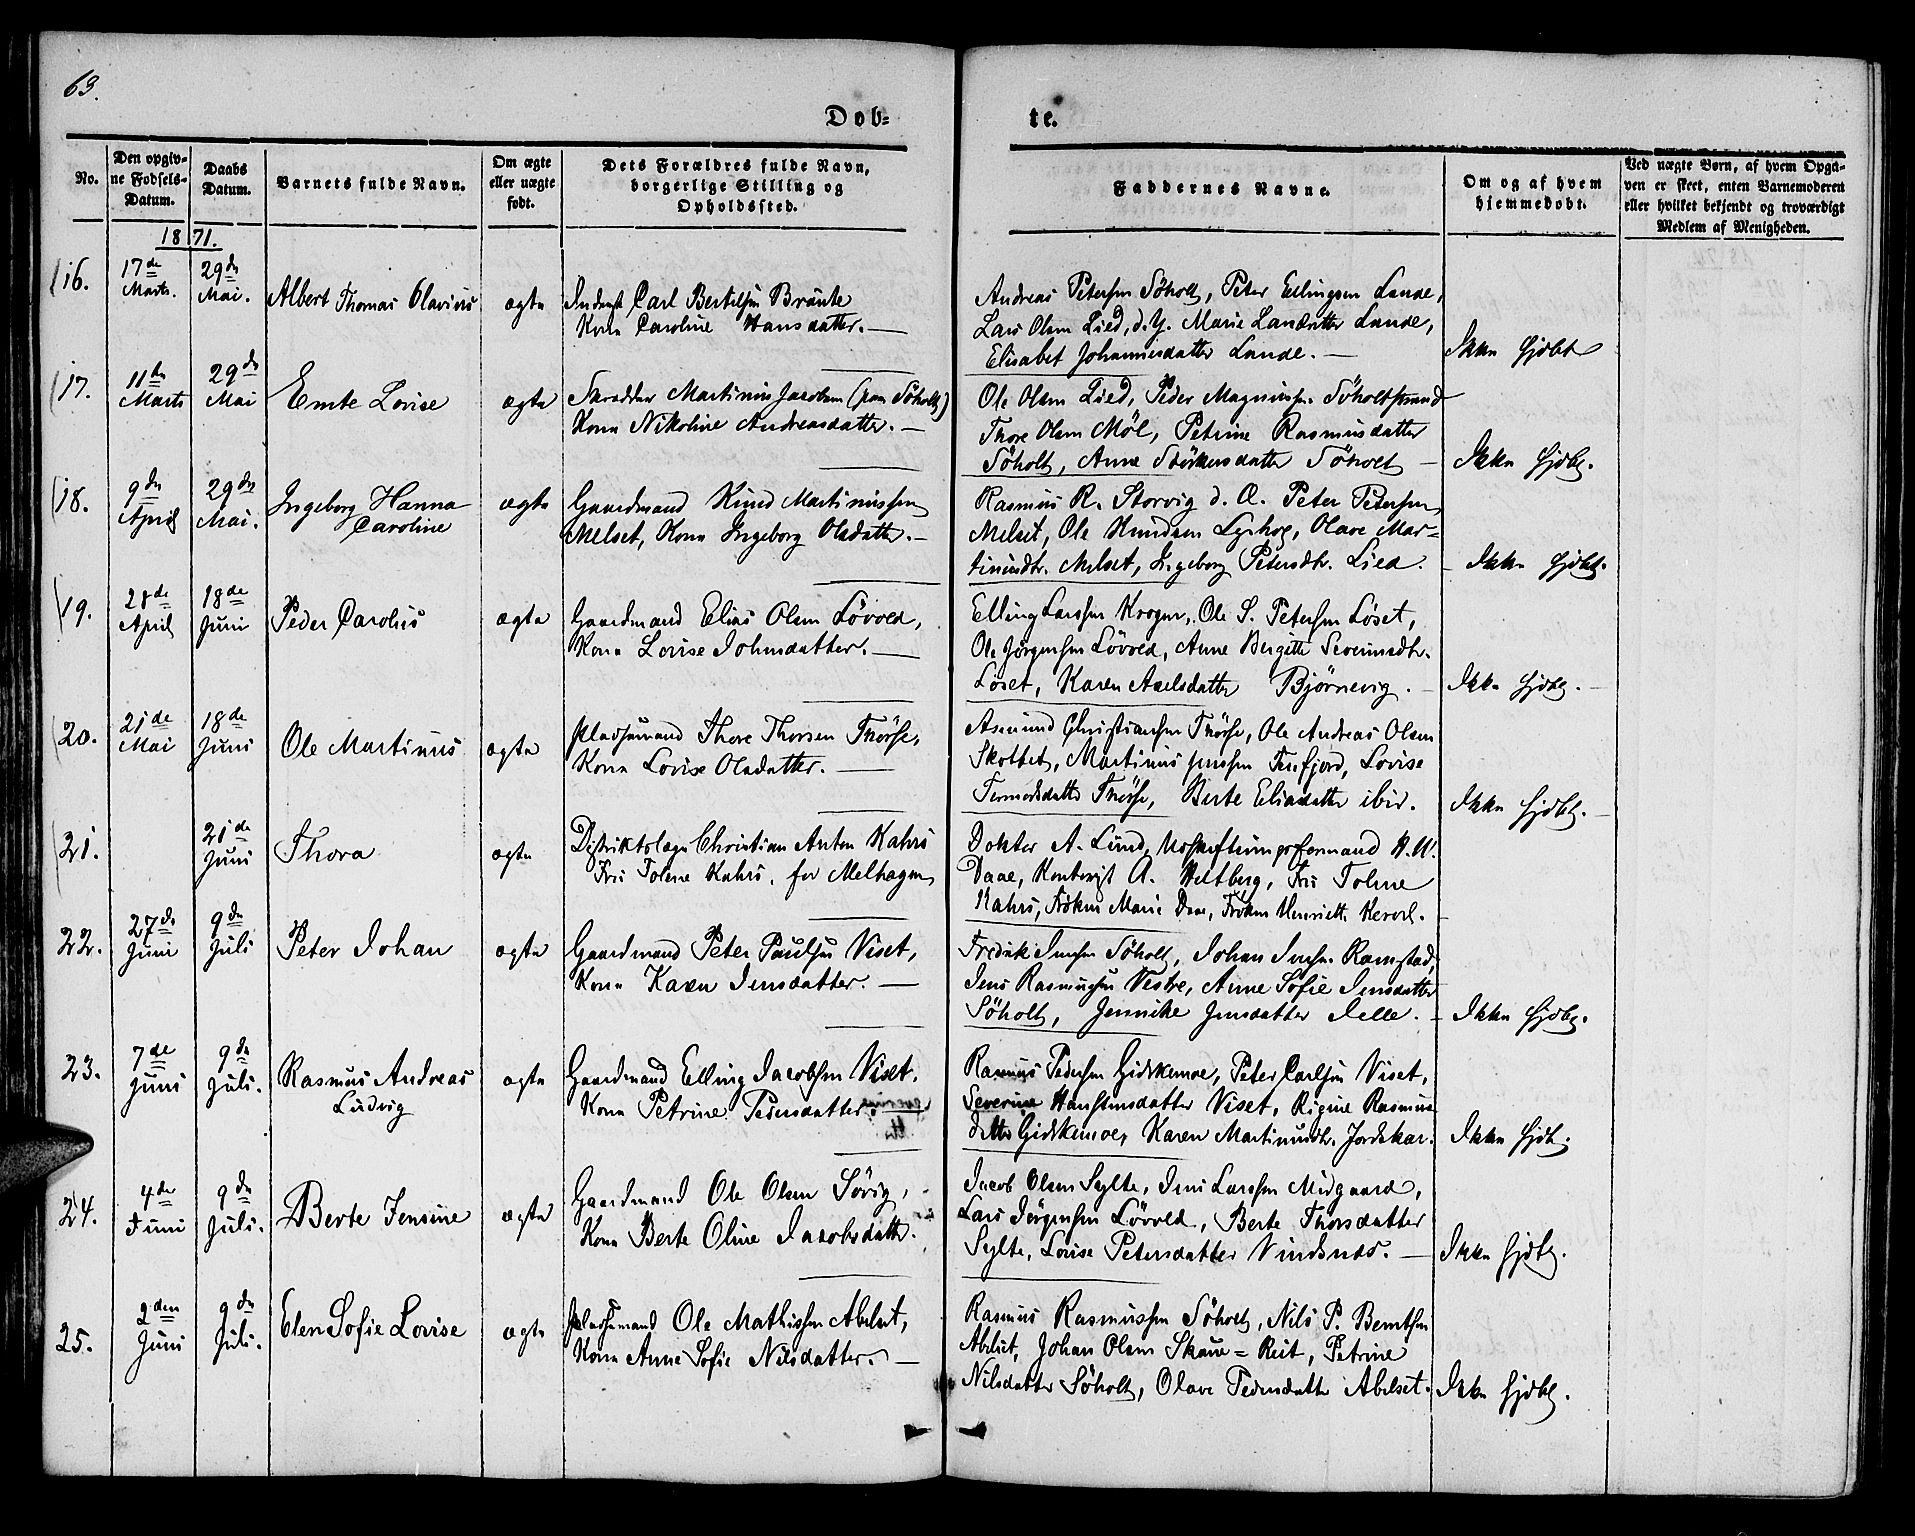 63.
Døb=
te.
No.
Den opgiv-
ne Fødsels-
Datum.
Daabs
Datum.
Barnets fulde Navn.
Om ægte
eller uægte
født.
Dets Forældres fulde Navn,
borgerlige Stilling og
Opholdssted.
Faddernes Navne.
Om og af hvem
hjemmedøbt.
Ved uægte Børn, af hvem Opgi-
ven er skeet, enten Barnemoderen
eller hvilket bekjendt og troværdigt
Medlem af Menigheden.
1871.
16.
17de
Marts.
29de
Mai.
Albert Thomas Olavius
ægte
Inderst Carl Bertelsen Braute
Kone Caroline Hansdatter.
Andreas Petersen Søholt, Peter Ellingsen Lande,
Lars Olsen Lied, d. y. Marie Larsdatter Lande,
Elisabet Johannesdatter Lande.
Ikke hjdbt
17.
11te
Marts
29de
Mai
Emte Lovise
ægte
Skrædder Martinus Jacobsen (paa Søholt)
Kone Nikoline Andreasdatter.
Ole Olsen Lied, Peder Magnussen Søholtstrand
Thore Olsen Möl, Petrine Rasmusdatter
Søholt, Anne Størkersdatter Søholt
Ikke hjdbt.
18.
9de
April
29de
Mai.
Ingeborg Hanna
Caroline
ægte
Gaardmand Knud Martinussen
Melset, Kone Ingeborg Olsdatter.
Rasmus R. Storvig d. Æ. Peter Petersen
Melset, Ole Knudsen Lyshog, Olave Mar=
tinusdtr. Melset, Ingeborg Petersdtr. Lied.
Ikke hjdbt.
19.
28de
April
18de
Juni
Peder Carolus
ægte
Gaardmand Elias Olsen Løvold,
Kone Lovise Johnsdatter.
Elling Larssen Krogen, Ole S. Petersen Løset,
Ole Jørgensen Løvold, Anne Bergitte Severinsdtr.
Løset, Karen Axelsdatter Bjørnevig.
Ikke hjdbt.
20.
21de
Mai
18de
Juni
Ole Martinus
ægte
Pladsemand Thore Thorsen Thörse,
Kone Lovise Olsdatter.
Asmund Christiansen Thörse, Ole Andreas Olsen
Skottet, Martinus Jenssen Tenfjord, Lovise
Tormodsdatter Thörse, Berte Eliasdatter ibid.
Ikke hjdbt.
21.
21de
Juni
Thora
ægte
Distriktslæge Christian Anton Kahrs
Fru Tolene Kahrs, for Melhagen
Doktor A. Lund, Udskiftningsformand H. U.
Daae, A. Heltberg, Fru Tolene
Kahrs, Frøken Marie Daae, Frøken Henriette
22.
27de
Juni
9de
Juli
Peter Johan
ægte
Gaardmand Peter Paulsen Viset,
Kone Karen Jensdatter.
Fredrik Jensen Søholt, Johan Ramstad,
Jens Rasmussen Vestre, Anne Sofie Jensdatter
Søholt, Jennike Jensdatter Aelle.
Ikke hjdbt.
23.
7de
Juni
9de
Juli.
Rasmus Andreas
Ludvig
ægte
Gaardmand Elling Jacobsen Viset.
Kone Petrine Pedersdatter.
Rasmus Pedersen Gidskemoe, Peter Carlsen Viset,
Severine Hanssensdatter Viset, Rigine Rasmus
datter Gidskemoe, Karen Martinusdtr. Jordskar.
Ikke hjdbt.
24.
4de
Juni
9de
Juli.
Berte Jensine
ægte
Gaardmand Ole Olsen Søvig,
Kone Berte Oline Jacobsdatter.
Jacob Olsen Sylte, Jens Larssen Midgaard,
Lars Jørgensen Løvold, Berte Thorsdatter
Sylte, Lovise Petersdatter Vindsnes.
Ikke hjdbt.
25.
2den
Juni
9de
Juli.
Elen Sofie Lovise
ægte
Pladsemand Ole Mathissen Abelset,
Kone Anne Sofie Nilsdatter.
Rasmus Rasmussen Søholt, Nils P. Berntsen
Abelset, Johan Olsen Skaue=Reit, Petrine
Nilsdatter Søholt, Olave Pedersdatter Abelset.
Ikke hjdbt.